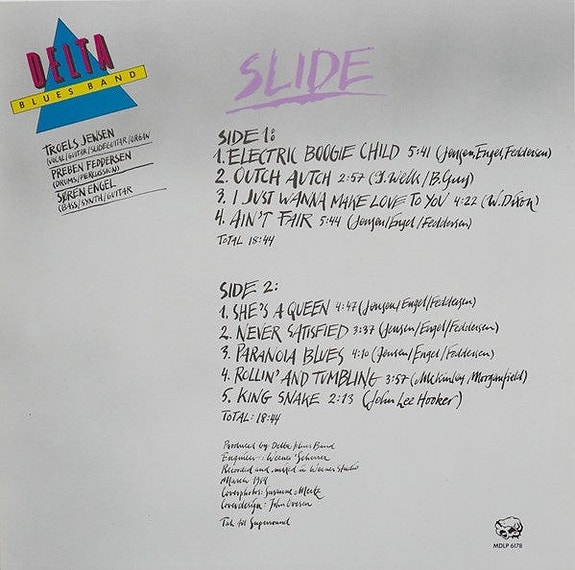 DELTA
BLUES BAND
TROELS JENSEN
(VOCAL/GUITAR/SLIDEGUITAR/ORGAN
PREBEN FEDDERSEN
(DRUMS/PERCUSSION)
SØREN ENGEL
(BASS/SYNTH/GUITAR
SLIDE
SIDE 1:
1. ELECTRIC BOOGIE CHILD 5:41 (Jensen, Engel, Feddersen)
2. OUTCH AUTCH 2:57 (J. Wells/B. Guy)
3. I JUST WANNA MAKE LOVE TO YOU 4:22 (W. Dixon)
4. AIN'T FAIR 5:44 (Jensen/Engel/Feddersen)
TOTAL 18:44
SIDE 2:
1. SHE'S A QUEEN 4:47 (Jensen/Engel/Feddersen)
2. NEVER SATISFIED 3:37 (Jensen/Engel/Feddersen)
3. PARANOIA BLUES 4:10 (Jensen/Engel/Feddersen)
4. ROLLIN' AND TUMBLING 3:57 (McKinley, Morganfield)
5. KING SNAKE 2:13 (John Lee Hooker)
TOTAL: 18:44
Produced by: Delta Blues Band
Engineer: Werner Scherrer
Recorded and mixed in Werner Studio
March
Coverphotos: Susanne Mertz
Coverdesign: John
Tak til Supersound
MDLP 6178